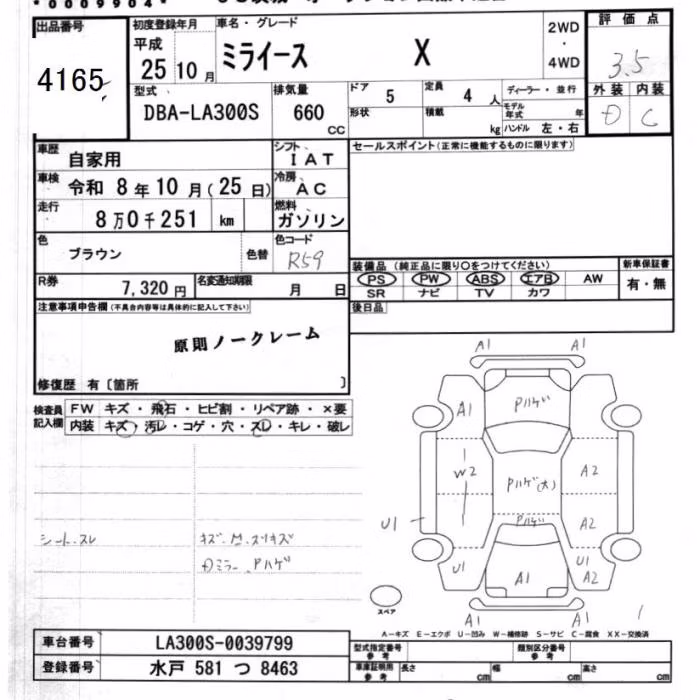 *0009904*
出品番号 4165
初度登録年月 平成 25年 10月
車名・グレード ミライース X
2WD ・ 4WD
評価点 3.5
外装 D 内装 C
型式 DBA-LA300S
排気量 660 CC
ドア 5
形状
定員 4 人
積載 kg
ディーラー・並行
モデル年式 年
ハンドル 左・右
車歴 自家用
シフト IAT
セールスポイント(正常に機能するものに限ります)
車検 令和 8年 10月(25日)
冷房 AC
走行 8万0千251 km
燃料 ガソリン
色 ブラウン 色替
色コード R59
装備品(純正品に限り○をつけてください)
PS PW ABS エアB AW
SR ナビ TV カワ
新車保証書 有・無
R券 7,320円
名変通知期限 月 日
後日品
注意事項申告欄(不具合内容等は具体的に記入して下さい)
原則ノークレーム
修復歴 有〔箇所 〕
検査員記入欄
FW キズ・飛石・ヒビ割・リペア跡・×要
内装 キズ・汚レ・コゲ・穴・スレ・キレ・破レ
シート、スレ
Dミラー、Pハゲ
A1 A1
A1 Pハゲ
W2 Pハゲ(大) A2
Pハゲ A2
U1
U1 A1 U1 A2
A1 A1
スペア
A―キズ E―エクボ U―凹み W―補修跡 S―サビ C―腐食 XX―交換済
車台番号 LA300S-0039799
登録番号 水戸 581 つ 8463
型式指定番号 参考
類別区分番号 参考
車庫証明用 参考 長さ cm 幅 cm 高さ cm